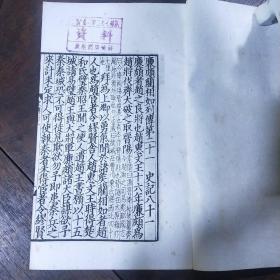 廉頗藺相如列傳第二十一 史記八十一
廉頗者趙之良將也趙惠文王十六年廉頗為
趙將伐齊大破之取晉陽
拜為上卿以勇氣聞於諸侯藺相如者趙
人也為趙宦者令繆賢舍人趙惠文王時得楚
和氏璧秦昭王聞之使人遺趙王書願以十五
城請易璧趙王與大將軍廉頗諸大臣謀欲予
秦秦城恐不可得徒見欺欲勿予即患秦兵之
來計未定求人可使報秦者未得宦者令繆賢
資料